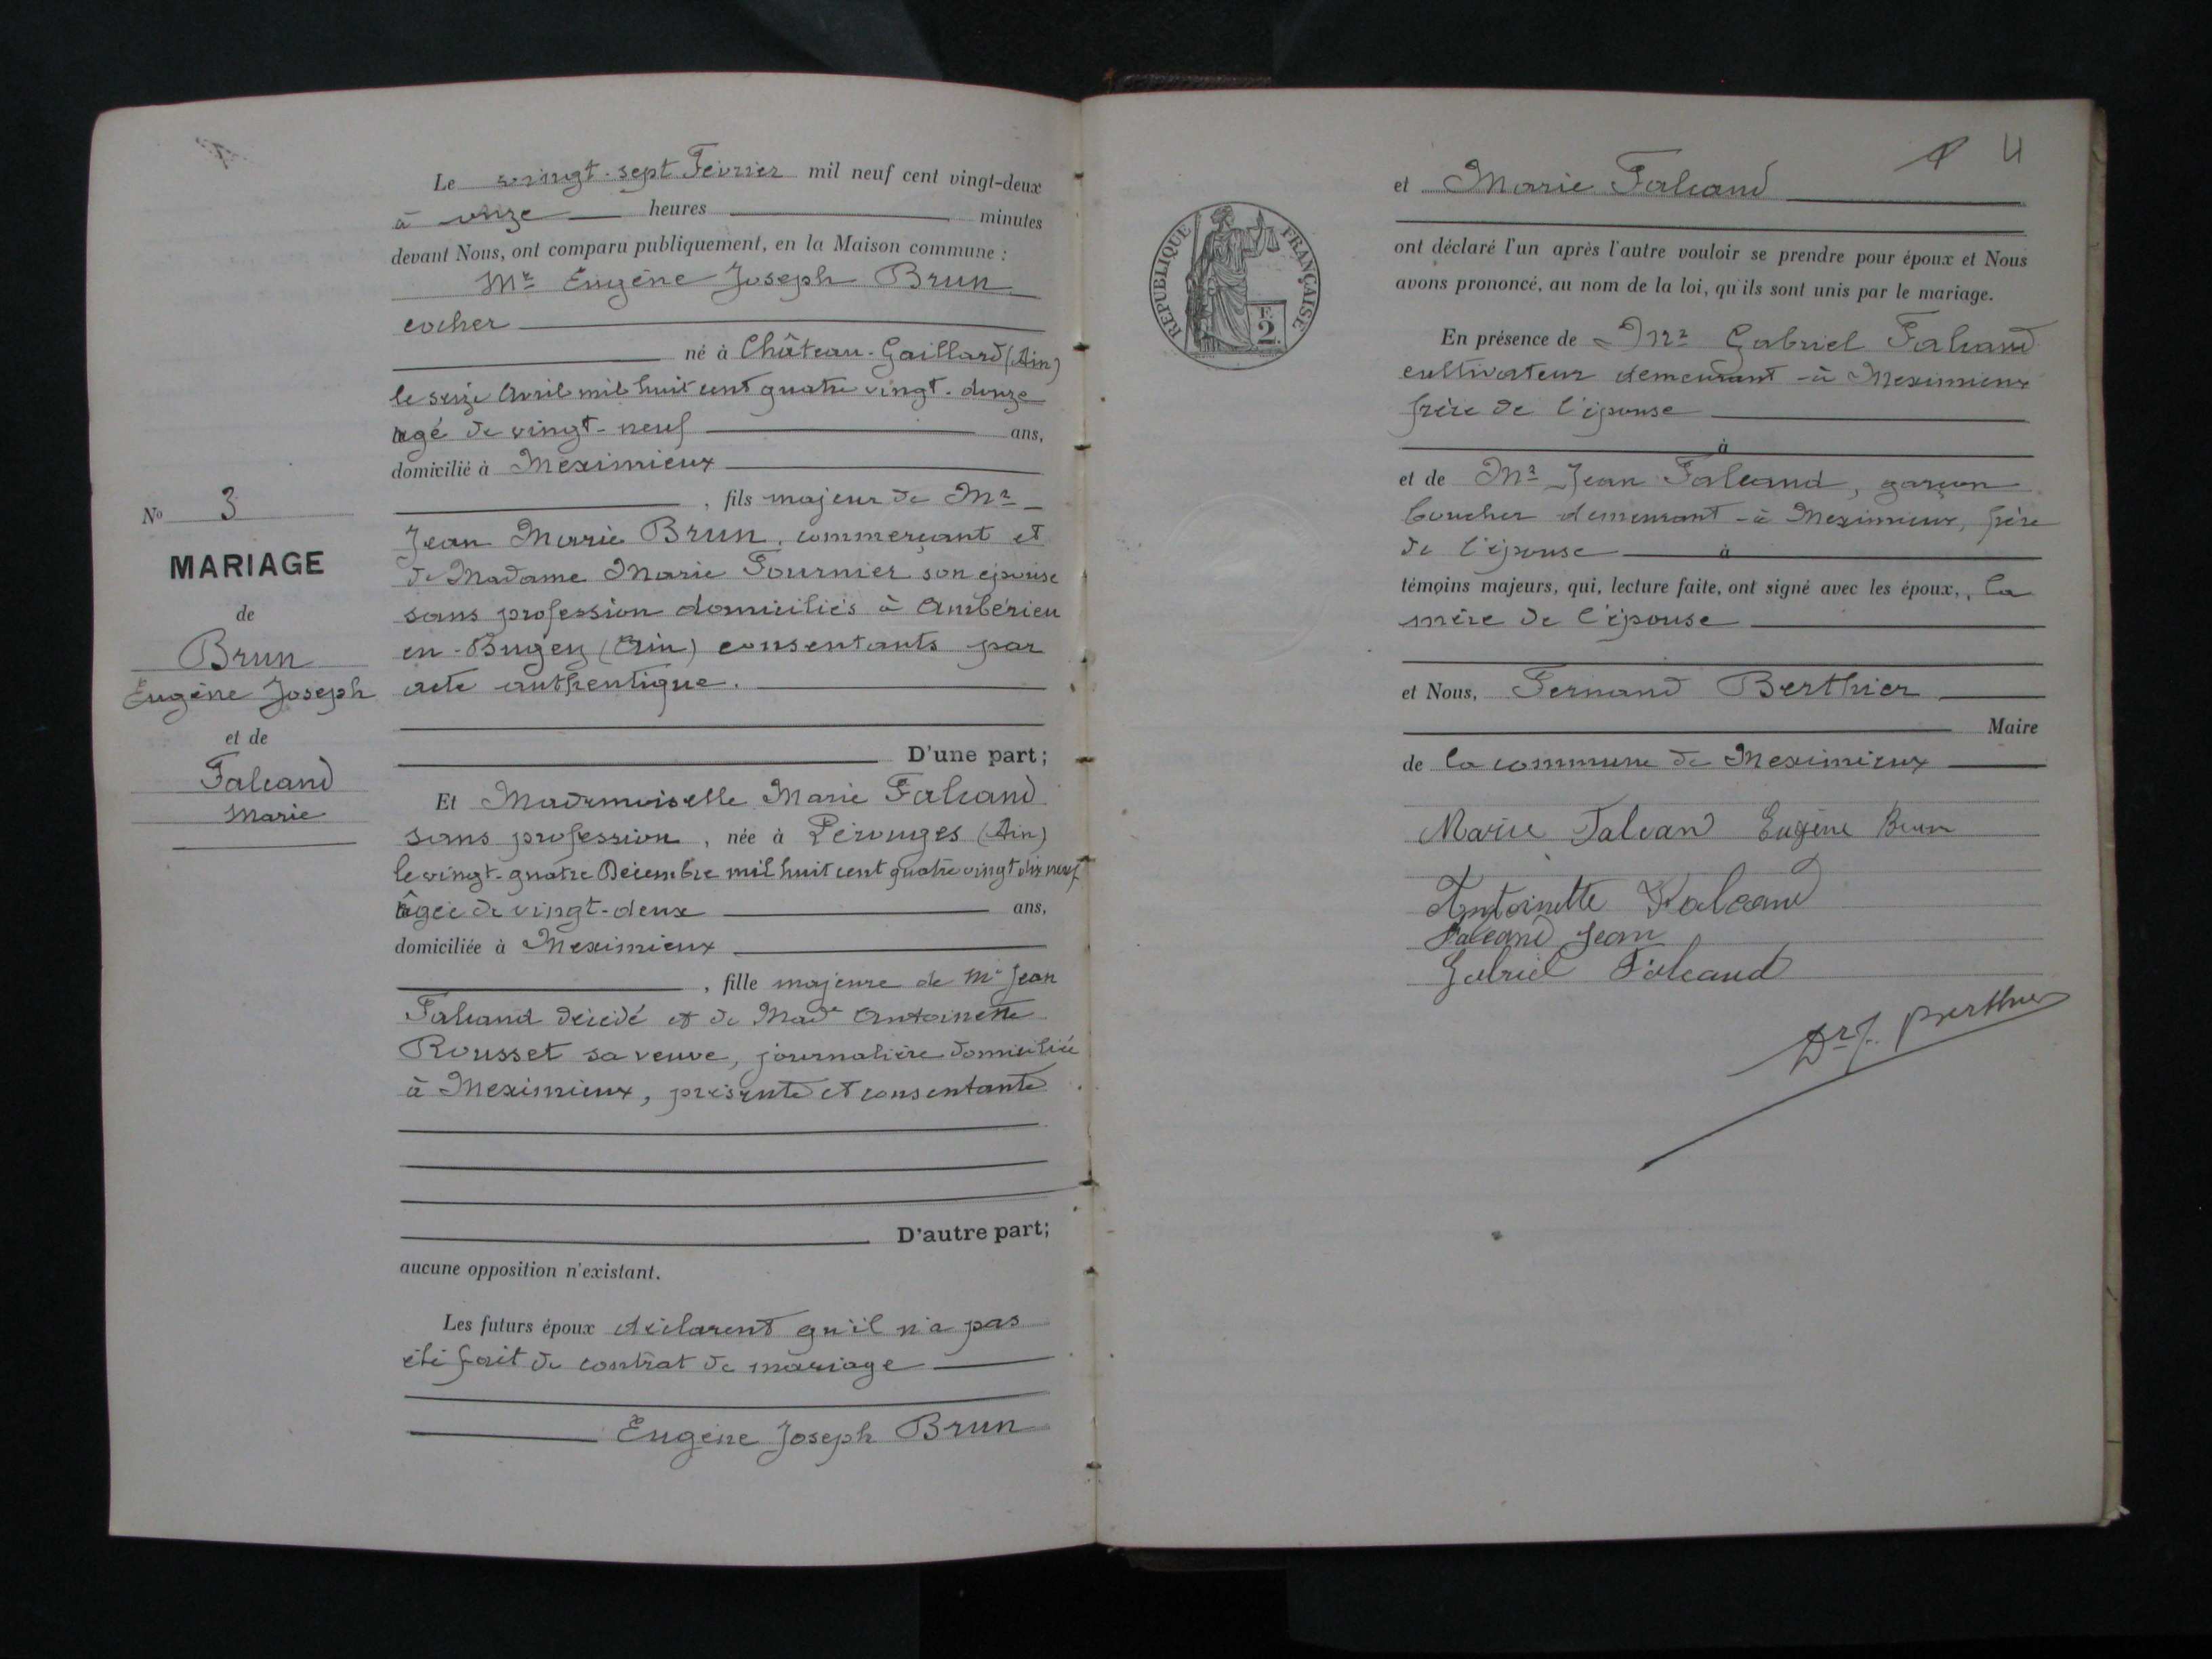 Le vingt-sept Février mil neuf cent vingt-deux
à onze heures minutes
devant Nous, ont comparu publiquement, en la Maison commune :
Mr Eugène Joseph Brun
cocher
né à Château-Gaillard (Ain)
le seize Avril mil huit cent quatre vingt-douze
âgé de vingt-neuf ans,
domicilié à Meximieux
, fils majeur de Mr
Jean Marie Brun, commerçant et
de Madame Marie Fournier son épouse
sans profession domiciliés à Ambérieu
en-Bugey (Ain) consentants par
acte authentique.
D'une part;
Et Mademoiselle Marie Falcand
sans profession, née à Pérouges (Ain)
le vingt-quatre Décembre mil huit cent quatre vingt dix neuf
âgée de vingt-deux ans,
domiciliée à Meximieux
, fille majeure de Mr Jean
Falcand décédé et de Made Antoinette
Rousset sa veuve, journalière domiciliée
à Meximieux, présente et consentante
D'autre part;
aucune opposition n'existant.
Les futurs époux déclarent qu'il n'a pas
été fait de contrat de mariage
Eugène Joseph Brun
No 3
MARIAGE
de
Brun
Eugène Joseph
et de
Falcand
Marie
4
RÉPUBLIQUE FRANÇAISE
F.
2
et Marie Falcand
ont déclaré l'un après l'autre vouloir se prendre pour époux et Nous
avons prononcé, au nom de la loi, qu'ils sont unis par le mariage.
En présence de Mr Gabriel Falcand
cultivateur demeurant à Meximieux
frère de l'épouse
à
et de Mr Jean Falcand, garçon
boucher demeurant à Meximieux, frère
de l'épouse à
témoins majeurs, qui, lecture faite, ont signé avec les époux, la
mère de l'épouse
et Nous, Fernand Berthier
Maire
de la commune de Meximieux
Marie Falcand Eugène Brun
Antoinette Falcand
Falcand Jean
Gabriel Falcand
Dr F. Berthier